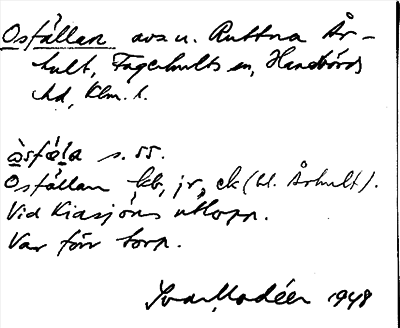 Osfällan ava u. Ruttna År-
hult, Fagerhults sn, Handbörds
hd, Klm. l.
ò̱sfæ̱l̩a s. 55.
Osfällan kb, jr, ek (bl. Århult).
Vid Kiasjöns utlopp.
Var förr torp.
Ivar Modéer 1948